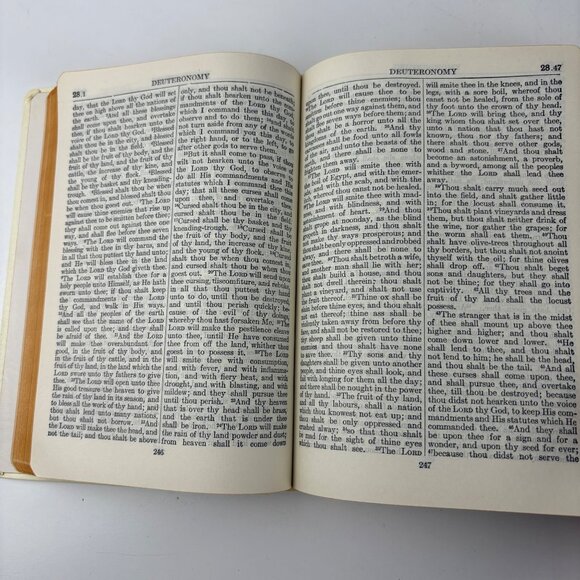 28.1
DEUTERONOMY
day, that the LORD thy God will set
thee on high above all the nations of
the earth. ²And all these blessings
shall come upon thee, and overtake
thee, if thou shalt hearken unto the
voice of the LORD thy God. ³Blessed
shalt thou be in the city, and blessed
shalt thou be in the field. ⁴Blessed
shall be the fruit of thy body, and the
fruit of thy land, and the fruit of thy
cattle, the increase of thy kine, and
the young of thy flock. ⁵Blessed
shall be thy basket and thy kneading-
trough. ⁶Blessed shalt thou be when
thou comest in, and blessed shalt thou
be when thou goest out. ⁷The LORD
will cause thine enemies that rise up
against thee to be smitten before thee;
they shall come out against thee one
way, and shall flee before thee seven
ways. ⁸The LORD will command the
blessing with thee in thy barns, and
in all that thou puttest thy hand unto;
and He will bless thee in the land
which the LORD thy God giveth thee.
⁹The LORD will establish thee for a
holy people unto Himself, as He hath
sworn unto thee; if thou shalt keep
the commandments of the LORD
thy God, and walk in His ways.
¹⁰And all the peoples of the earth
shall see that the name of the LORD
is called upon thee; and they shall
be afraid of thee. ¹¹And the LORD
will make thee overabundant for
good, in the fruit of thy body, and
in the fruit of thy cattle, and in the
fruit of thy land, in the land which the
LORD swore unto thy fathers to give
thee. ¹²The LORD will open unto thee
His good treasure the heaven to give
the rain of thy land in its season, and
to bless all the work of thy hand; and
thou shalt lend unto many nations,
but thou shalt not borrow. ¹³And
the LORD will make thee the head, and
not the tail; and thou shalt be above
only, and thou shalt not be beneath;
if thou shalt hearken unto the com-
mandments of the LORD thy God,
which I command thee this day, to
observe and to do them; ¹⁴and shalt
not turn aside from any of the words
which I command you this day, to
the right hand, or to the left, to go
after other gods to serve them.
¹⁵But it shall come to pass, if thou
wilt not hearken unto the voice of
the LORD thy God, to observe to
do all His commandments and His
statutes which I command thee this
day; that all these curses shall come
upon thee, and overtake thee.
¹⁶Cursed shalt thou be in the city, and
cursed shalt thou be in the field.
¹⁷Cursed shall be thy basket and thy
kneading-trough. ¹⁸Cursed shall be
the fruit of thy body, and the fruit of
thy land, the increase of thy kine, and
the young of thy flock. ¹⁹Cursed
shalt thou be when thou comest in,
and cursed shalt thou be when thou
goest out. ²⁰The LORD will send upon
thee cursing, discomfiture, and rebuke,
in all that thou puttest thy hand
unto to do, until thou be destroyed,
and until thou perish quickly; be-
cause of the evil of thy doings,
whereby thou hast forsaken Me. ²¹The
LORD will make the pestilence cleave
unto thee, until He have consumed
thee from off the land, whither thou
goest in to possess it. ²²The LORD
will smite thee with consumption,
and with fever, and with inflamma-
tion, and with fiery heat, and with
drought, and with blasting, and with
mildew; and they shall pursue thee
until thou perish. ²³And thy heaven
that is over thy head shall be brass,
and the earth that is under thee
shall be iron. ²⁴The LORD will make
the rain of thy land powder and dust;
from heaven shall it come down
246
DEUTERONOMY
28.47
upon thee, until thou be destroyed.
²⁵The LORD will cause thee to be
smitten before thine enemies; thou
shalt go out one way against them, and
shalt flee seven ways before them; and
thou shalt be a horror unto all the
kingdoms of the earth. ²⁶And thy
carcasses shall be food unto all fowls
of the air, and unto the beasts of the
earth, and there shall be none to
frighten them away.
²⁷The LORD will smite thee with
the boil of Egypt, and with the emer-
ods, and with the scab, and with the
itch, whereof thou canst not be healed.
²⁸The LORD will smite thee with
madness, and with blindness, and with
astonishment of heart. ²⁹And thou
shalt grope at noonday, as the blind
gropeth in darkness, and thou shalt
not make thy ways prosperous; and
thou shalt be only oppressed and robbed
alway, and there shall be none to
save thee. ³⁰Thou shalt betroth a wife,
and another man shall lie with her;
thou shalt build a house, and thou
shalt not dwell therein; thou shalt
plant a vineyard, and shalt not use
the fruit thereof. ³¹Thine ox shall be
slain before thine eyes, and thou shalt
not eat thereof; thine ass shall be
violently taken away from before thy
face, and shall not be restored to thee;
thy sheep shall be given unto thine
enemies; and thou shalt have none
to save thee. ³²Thy sons and thy
daughters shall be given unto another
people, and thine eyes shall look, and
fail with longing for them all the day;
and there shall be nought in the power
of thy hand. ³³The fruit of thy land,
and all thy labours, shall a nation
which thou knowest not eat up; and
thou shalt be only oppressed and
crushed alway; ³⁴so that thou shalt
be mad for the sight of thine eyes
which thou shalt see. ³⁵The LORD
will smite thee in the knees, and in the
legs, with a sore boil, whereof thou
canst not be healed, from the sole of
thy foot unto the crown of thy head.
³⁶The LORD will bring thee, and thy
king whom thou shalt set over thee,
unto a nation that thou hast not
known, thou nor thy fathers; and
there shalt thou serve other gods,
wood and stone. ³⁷And thou shalt
become an astonishment, a proverb,
and a byword, among all the peoples
whither the LORD shall lead thee
away.
³⁸Thou shalt carry much seed out
into the field, and shalt gather little
in; for the locust shall consume it.
³⁹Thou shalt plant vineyards and dress
them, but thou shalt neither drink of
the wine, nor gather the grapes; for
the worm shall eat them. ⁴⁰Thou
shalt have olive-trees throughout all
thy borders, but thou shalt not anoint
thyself with the oil; for thine olives
shall drop off. ⁴¹Thou shalt beget
sons and daughters, but they shall
not be thine; for they shall go into
captivity. ⁴²All thy trees and the
fruit of thy land shall the locust
possess.
⁴³The stranger that is in the midst
of thee shall mount up above thee
higher and higher; and thou shalt
come down lower and lower. ⁴⁴He
shall lend to thee, and thou shalt
not lend to him; he shall be the head,
and thou shalt be the tail. ⁴⁵And all
these curses shall come upon thee,
and shall pursue thee, and overtake
thee, till thou be destroyed; because
thou didst not hearken unto the voice
of the LORD thy God, to keep His com-
mandments and His statutes which He
commanded thee. ⁴⁶And they shall
be upon thee for a sign and for a
wonder, and upon thy seed for ever;
⁴⁷because thou didst not serve the
247